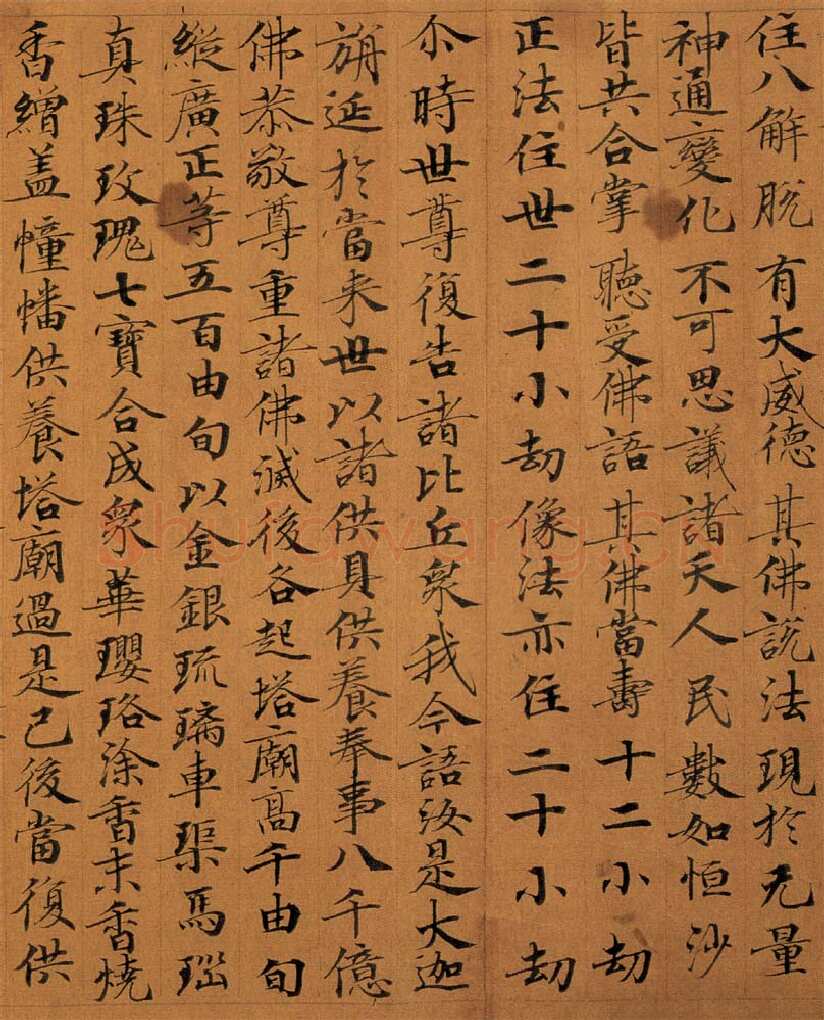 住八解脫 有大威德 其佛說法 現於无量
神通變化 不可思議 諸天人民 數如恒沙
皆共合掌 聽受佛語 其佛當壽 十二小劫
正法住世 二十小劫 像法亦住 二十小劫
尒時世尊復告諸比丘衆我今語汝是大迦
旃延於當来世以諸供具供養奉事八千億
佛恭敬尊重諸佛滅後各起塔廟高千由旬
縱廣正等五百由旬以金銀琉璃車璖馬瑙
真珠玫瑰七寶合成衆華瓔珞涂香末香燒
香繒盖幢幡供養塔廟過是已後當復供